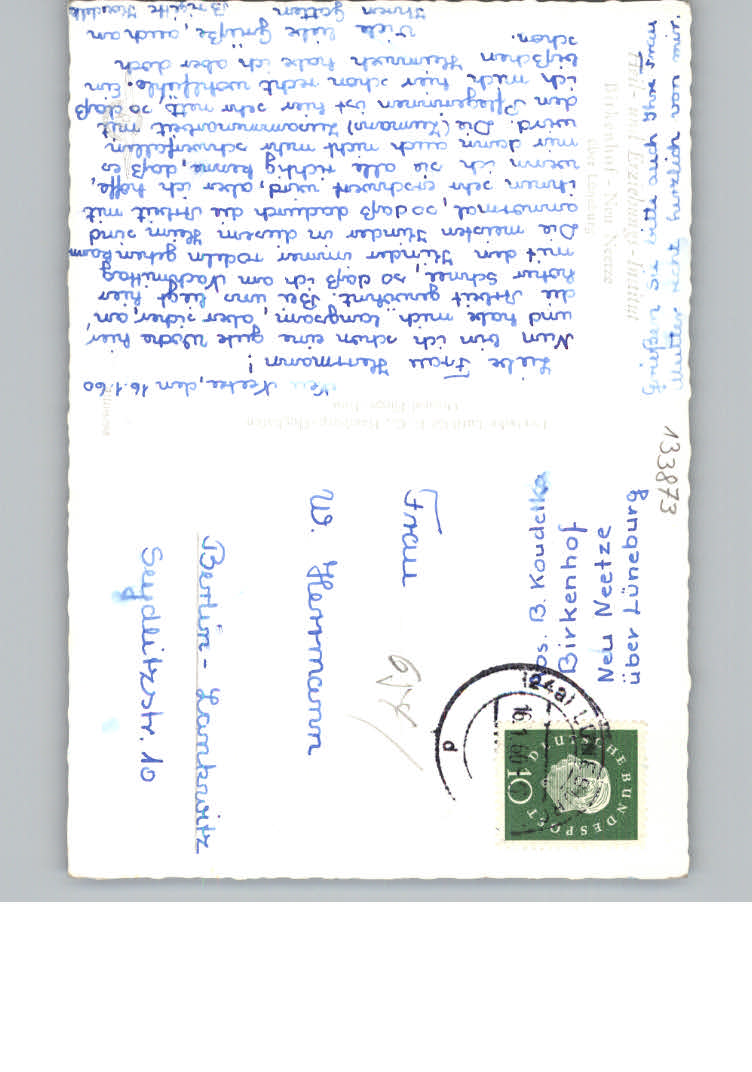 Neu Neetze, den 16.1.60
Liebe Frau Herrmann!
Nun bin ich schon eine gute Woche hier,
und habe mich, langsam, aber sicher, an
die Arbeit gewöhnt. Bei uns liegt hier
hoher Schnee, so daß ich am Nachmittag
mit den Kinder immer rodeln gehen kann
Die meisten Kinder in diesem Heim sind
annormal, so daß dadurch die Arbeit mit
ihnen sehr erschwert wird, aber ich hoffe,
wenn ich sie alle richtig kenne, daß es
mir dann auch nicht mehr schwerfallen
wird. Die (Zusammenarbeit mit
den Pflegerinnen ist hier sehr nett, so daß
ich mich hier schon recht wohlfühle. Ein
bißchen Heimweh habe ich aber doch
schon.
Viele liebe Grüße, auch an
Ihren Gatten
Brigitte Koudelka
Grüßen Sie bitte auch Ihre Frau
Mutter recht herzlich von mir.
Heil- und Erziehungs-Institut
Birkenhof - Neu Neetze
über Lüneburg
Abs. B. Koudelka
Birkenhof
Neu Neetze
über Lüneburg
Frau
W. Herrmann
Berlin - Lankwitz
Seydlitzstr. 10
133873
DEUTSCHE BUNDESPOST
10
(24a) LÜNEBURG
16.1.60
d